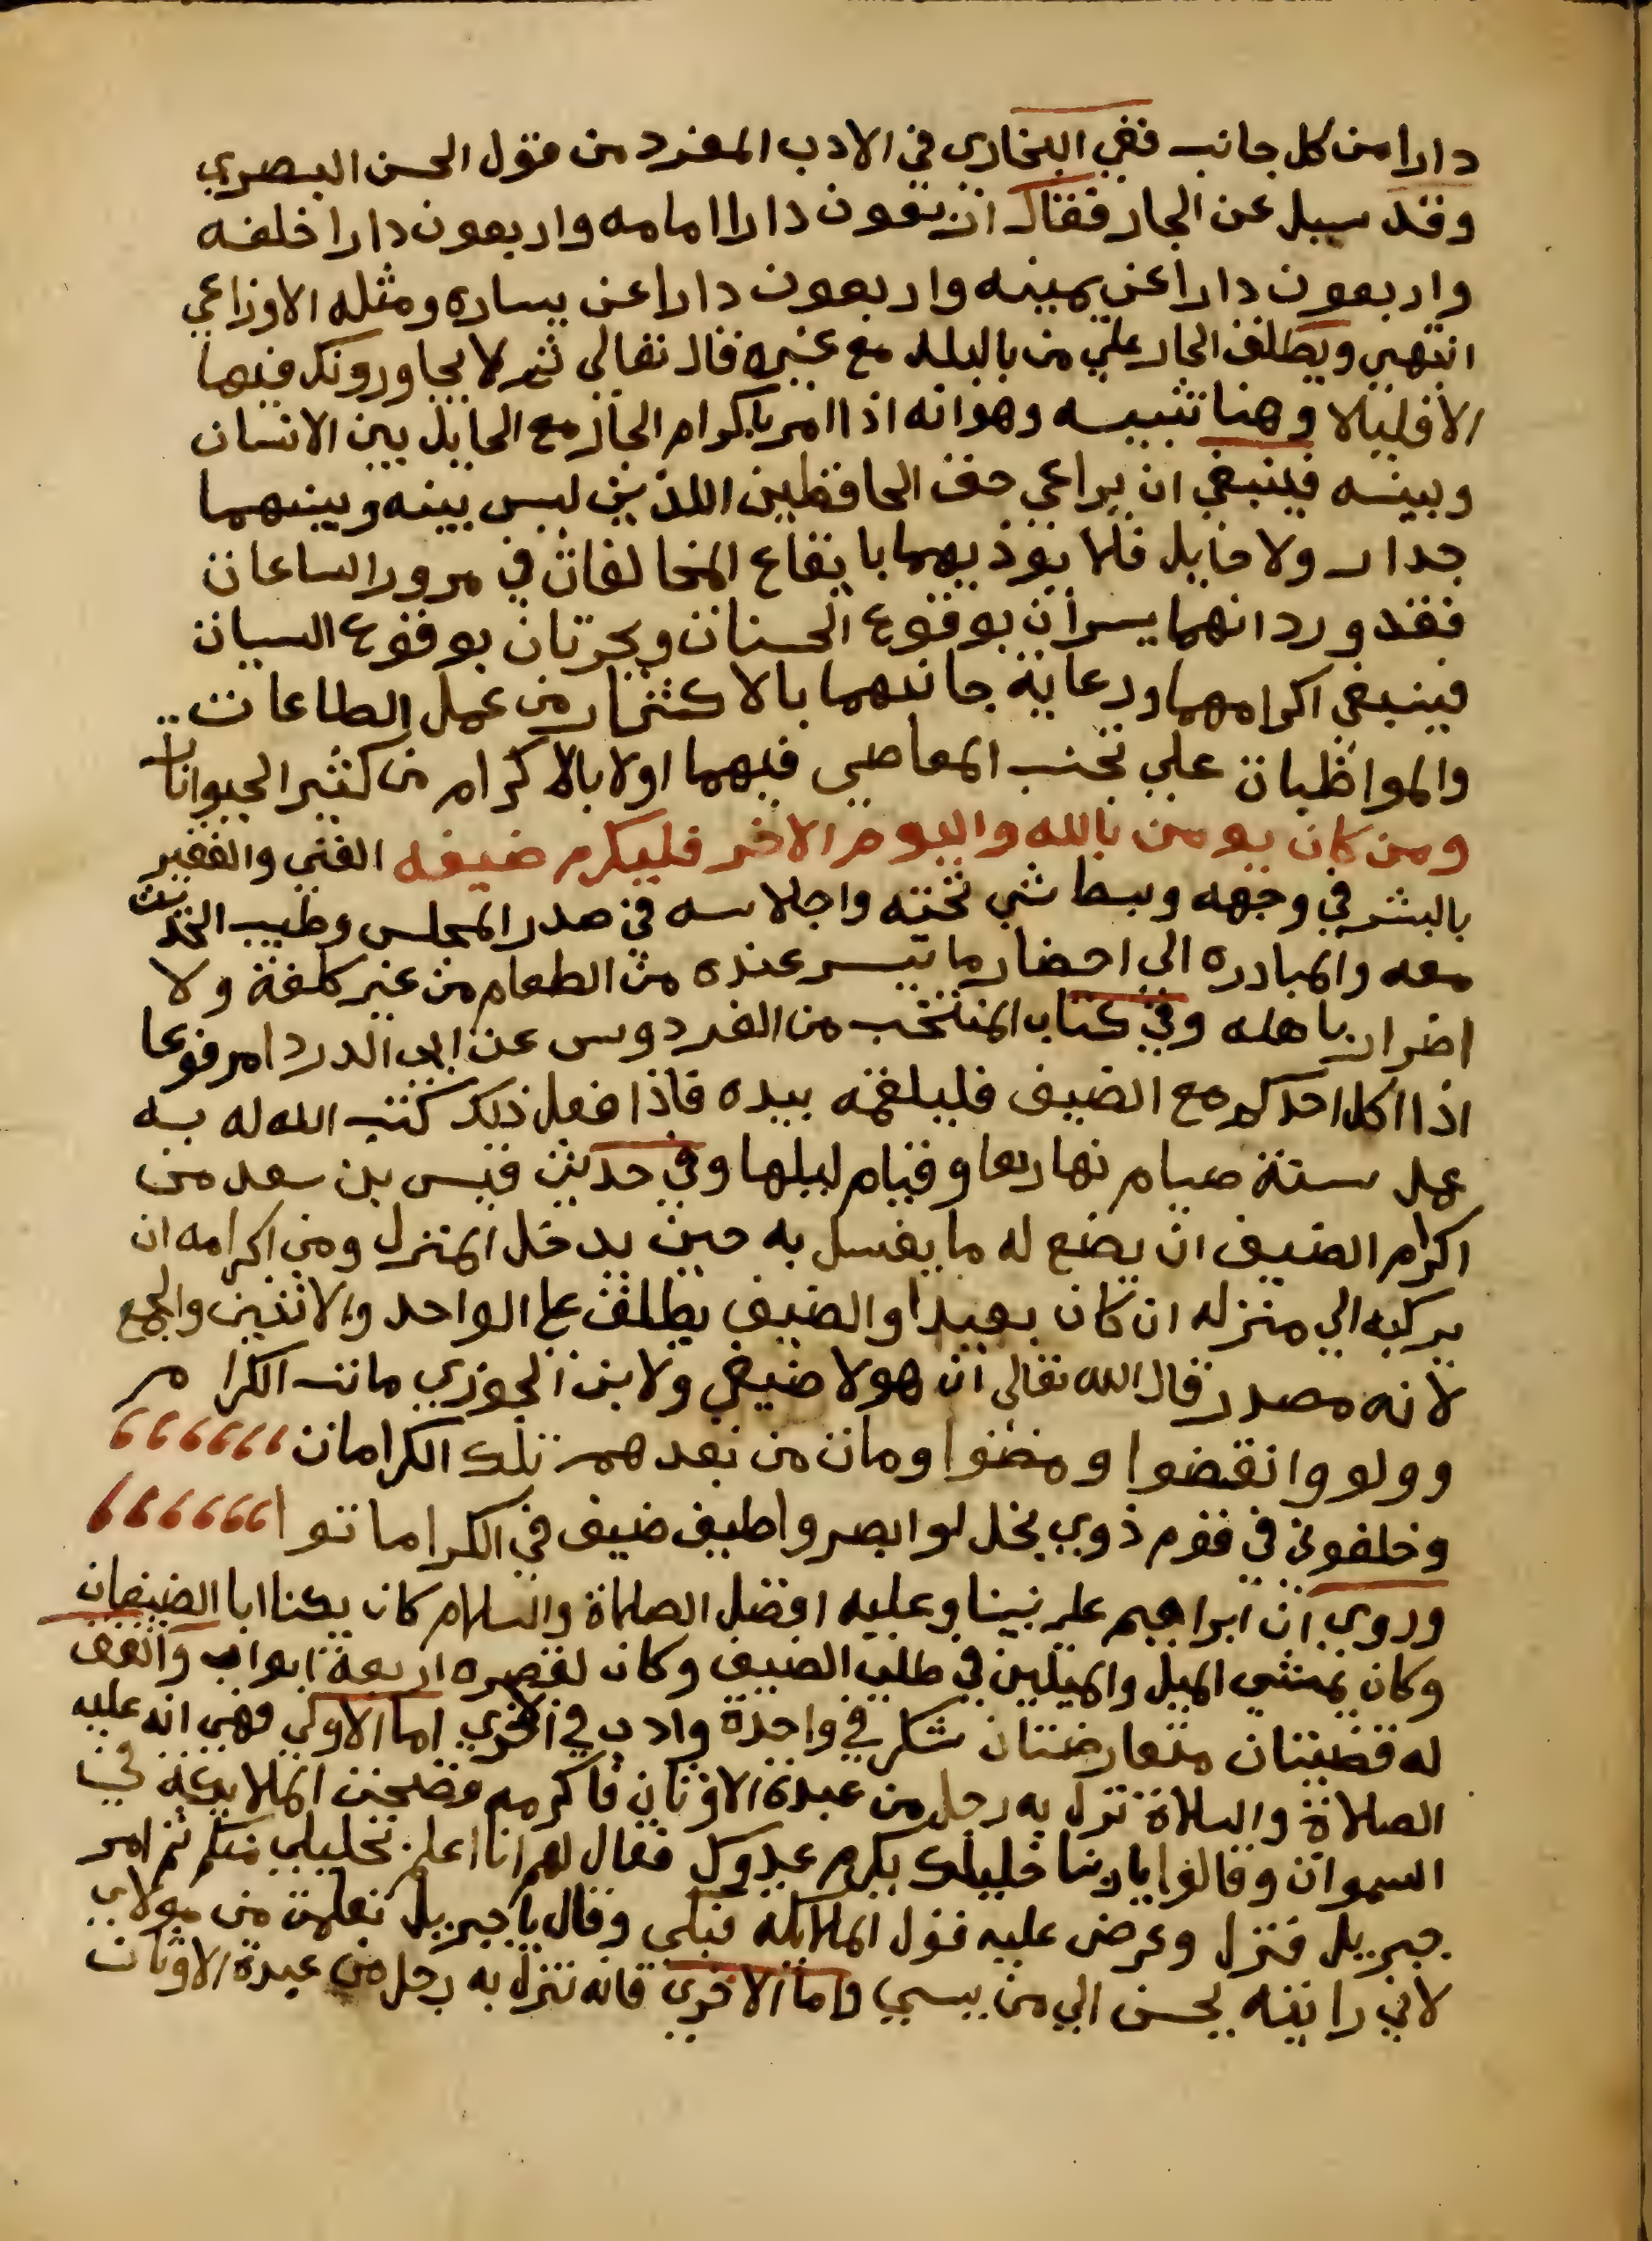 دارا من كل جانب ففي البخاري في الادب المفرد من قول الحسن البصري
وقد سيل عن الجار فقال اربعون دارا امامه واربعون دارا خلفه
واربعون دارا عن يمينه واربعون دارا عن يساره ومثله الاوزاعي
انتهي ويطلق الجار علي من بالبلد مع غيره قال تعالي ثم لا يجاورونك فيها
الا قليلا وهنا تنبيه وهو انه اذا امر باكرام الجار مع الحايل بين الانسان
وبينه فينبغي ان يراعي حق الحافظين اللذين ليس بينه وبينهما
جدار ولا حايل فلا يوذيهما بايقاع المخالفات في مرور الساعات
فقد ورد انهما يسران بوقوع الحسنات ويحزنان بوقوع السيات
فينبغي اكرامهما ورعاية جانبهما بالاكثار من عمل الطاعات
والمواظبات علي تجنب المعاصي فيهما اولا بالاكرام من كثير الحيوانات
ومن كان يومن بالله واليوم الاخر فليكرم ضيفه الغني والفقير
بالبشر في وجهه وبسط شي تحته واجلاسه في صدر المجلس وطيب الحديث
معه والمبادره الي احضار ما تيسر عنده من الطعام من غير كلفة ولا
اضرار باهله وفي كتاب المنتخب من الفردوس عن ابي الدردا مرفوعا
اذا اكل احدكم مع الضيف فليلقمه بيده فاذا فعل ذلك كتب الله له به
عمل سنة صيام نهارها وقيام ليلها وفي حديث قيس بن سعد من
اكرام الضيف ان يضع له ما يغسل به حين يدخل المنزل ومن اكرامه ان
يركبه الي منزله ان كان بعيدا والضيف يطلق علي الواحد والاثنين والجمع
لانه مصدر قال الله تعالي ان هولا ضيفي ولابن الجوزي مات الكرام
وولوا وانقضوا ومضوا ومات من بعدهم تلك الكرامات
وخلفوني في قوم ذوي بخل لو ابصروا طيف ضيف في الكرا ماتوا
وروي ان ابراهيم علي نبينا وعليه افضل الصلاة والسلام كان يكنا ابا الضيفان
وكان يمشي الميل والميلين في طلب الضيف وكان لقصره اربعة ابواب واتفق
له قضيتان متعارضتان شكر في واحدة وادب في الاخري اما الاولي فهي انه عليه
الصلاة والسلاة نزل به رجل من عبدة الاوثان فاكرمه فضجت الملايكة في
السموات وقالوا يا ربنا خليلك يكرم عدوك فقال لهم انا اعلم بخليلي منكم ثم امر
جبريل فنزل وعرض عليه قول الملايكه فبكي وقال يا جبريل تعلمت من مولاي
لاني رايته يحسن الي من يسي واما الاخري فانه نزل به رجل من عبدة الاوثان